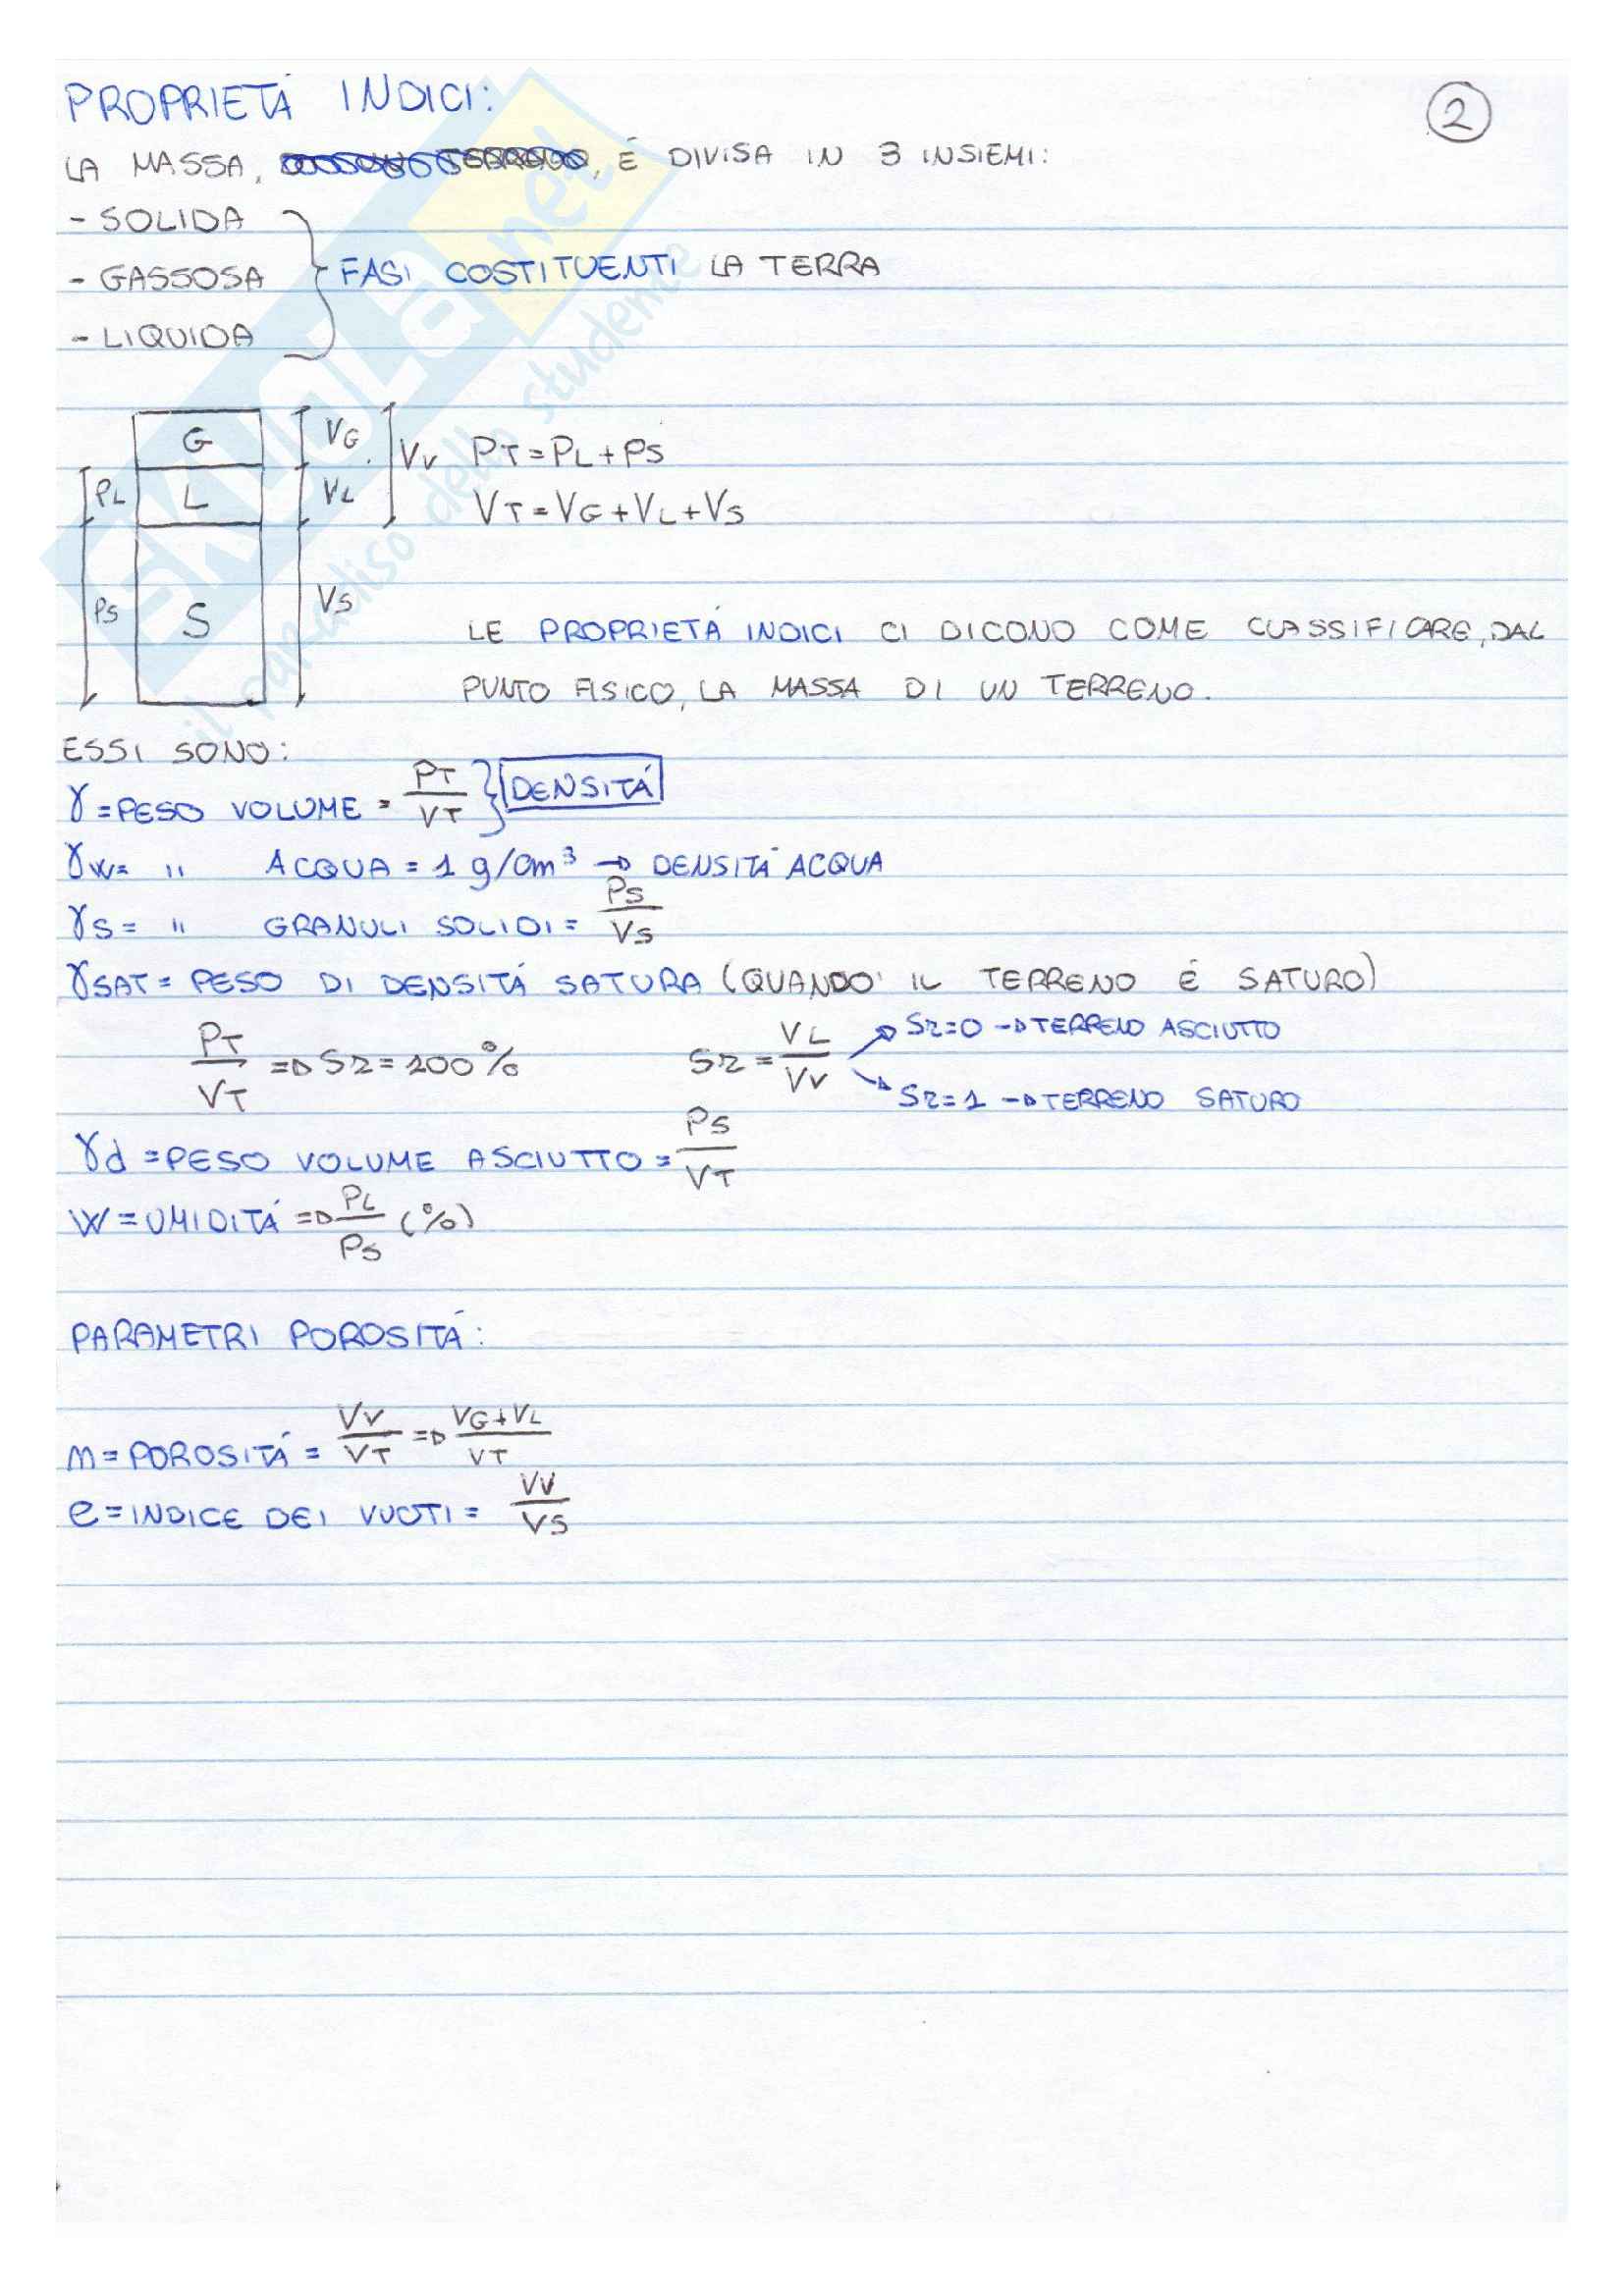 PROPRIETÁ INDICI:
2
LA MASSA, TERRENO, É DIVISA IN 3 INSIEMI:
- SOLIDA
- GASSOSA
FASI COSTITUENTI LA TERRA
- LIQUIDA
G VG VV PT=PL+PS
PL L VL VT=VG+VL+VS
PS S VS
LE PROPRIETÁ INDICI CI DICONO COME CLASSIFICARE, DAL
PUNTO FISICO, LA MASSA DI UN TERRENO.
ESSI SONO:
γ=PESO VOLUME = PT/VT } DENSITÁ
γW= " ACQUA = 1 g/cm³ → DENSITÁ ACQUA
γS= " GRANULI SOLIDI = PS/VS
γSAT= PESO DI DENSITÁ SATURA (QUANDO IL TERRENO É SATURO)
PT/VT ⇒ Sr=100% Sr = VL/VV
Sr=0 → TERRENO ASCIUTTO
Sr=1 → TERRENO SATURO
γd =PESO VOLUME ASCIUTTO = PS/VT
W = UMIDITÁ ⇒ PL/PS (%)
PARAMETRI POROSITÁ:
m= POROSITÁ = VV/VT ⇒ VG+VL/VT
e=INDICE DEI VUOTI = VV/VS
SKUOLA.net
il paradiso dello studente